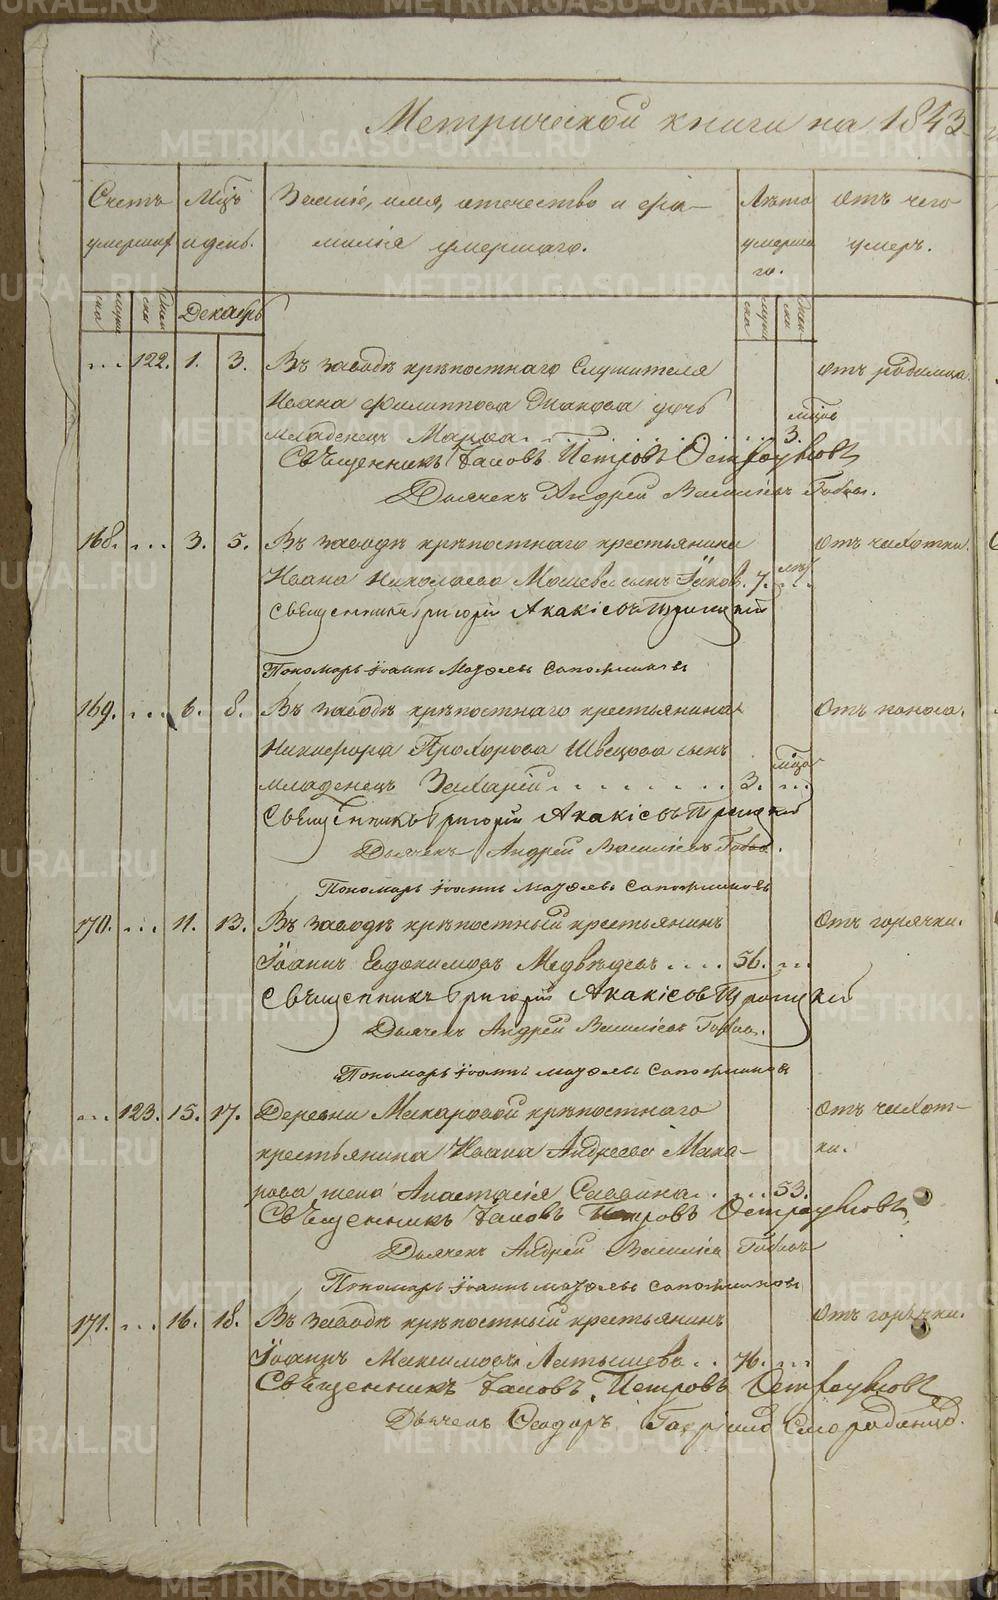 Метрической книги на 1843
Счетъ умерших
Мцъ и день.
Званіе, имя, отечество и фа-
милія умершаго.
Лѣта умерша
го.
отъ чего
умеръ.
Декабрь
... 122. 1. 3. Въ заводѣ крѣпостнаго служителя отъ родимца.
Ивана Филиппова дочь мцов
младенецъ Марѳа 3.
Священникъ Іаковъ Петровъ
Дьячекъ Андрей Василіевъ
168. ... 3. 5. Въ заводѣ крѣпостнаго крестьянина отъ чахотки.
Ивана Николаева сынъ Іаков. 7. ...
Священникъ Григорій Акакіевъ Троицкій
Пономарь Іоаннъ Матѳеевъ Сапожниковъ
169. ... 6. 8. Въ заводѣ крѣпостнаго крестьянина отъ поноса.
Никифора Прохорова Швецова сынъ мцов
младенецъ Захарій 3. ...
Священникъ Григорій Акакіевъ Троицкій
Дьячекъ Андрей Василіевъ
Пономарь Іоаннъ Матѳеевъ Сапожниковъ
170. ... 11. 13. Въ заводѣ крѣпостный крестьянинъ отъ горячки.
Іоаннъ Евдокимовъ Медвѣдевъ .... 56. ...
Священникъ Григорій Акакіевъ Троицкій
Дьячекъ Андрей Василіевъ
Пономарь Іоаннъ Матѳеевъ Сапожниковъ
... 123. 15. 17. Деревни Макаровой крѣпостнаго отъ чахот-
крестьянина Ивана Андреева Мака- ки.
рова жена Анастасія Саввина 53.
Священникъ Іаковъ Петровъ
Дьячекъ Андрей Василіевъ
Пономарь Іоаннъ Матѳеевъ Сапожниковъ
171. ... 16. 18. Въ заводѣ крѣпостный крестьянинъ отъ горячки.
Іоаннъ Максимовъ Латышевъ .. 76. ...
Священникъ Іаковъ Петровъ
Дьячекъ Ѳеодоръ Смородинцовъ.
METRIKI.GASO-URAL.RU